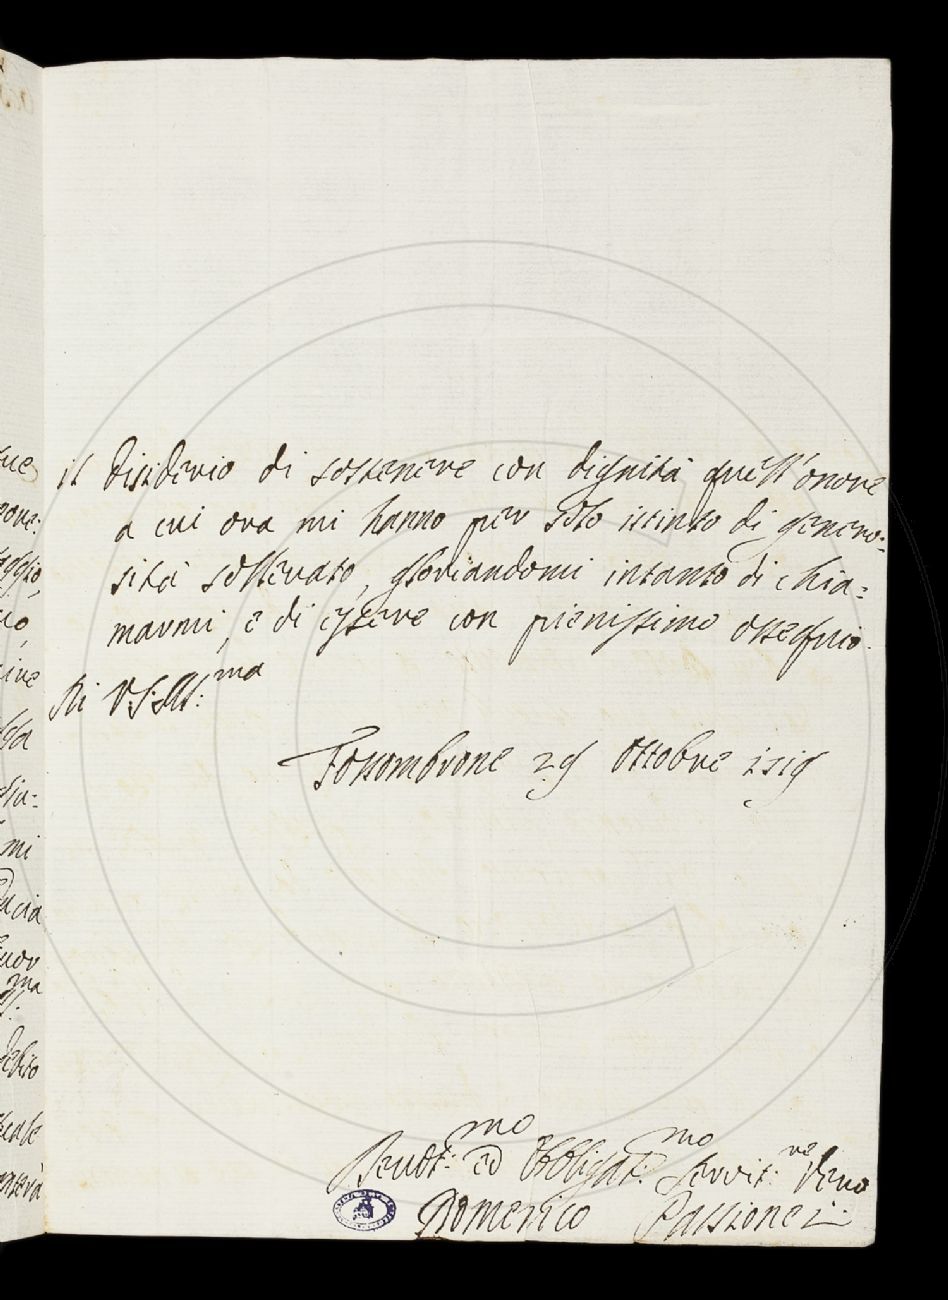 il disiderio di sostenere con dignità quell'onore
a cui ora mi hanno per solo istinto di genero=
sità sollevato, gloriandomi intanto di chia=
marmi, e di essere con pienissimo ossequio
Di V.S. Ill:ma
Fossombrone 29 Ottobre
Devot:mo ed Obbligat:mo Servit:re Vero
Domenico Passionei